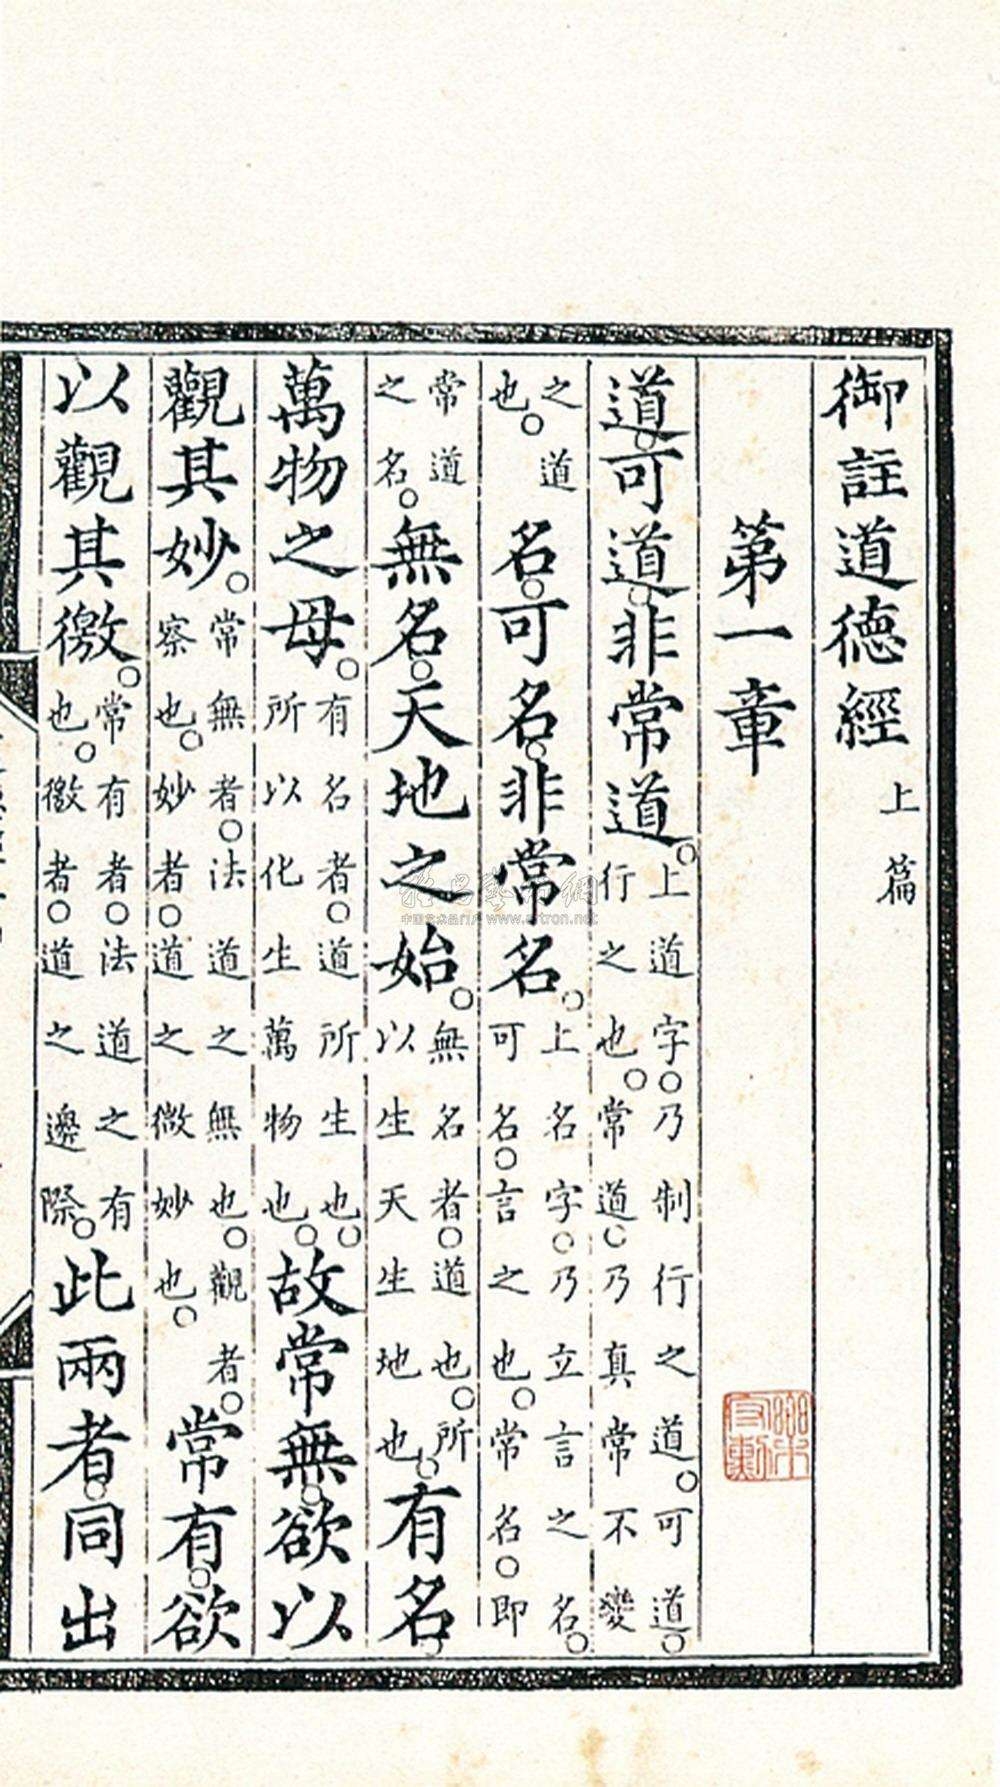 御註道德經 上篇
第一章
道。可道。非常道。上道字。乃制行之道。可道。行之也。常道。乃真常不變
之道也。名。可名。非常名。上名字。乃立言之名。可名。言之也。常名。即
常道之名。無名。天地之始。無名者。道也。所以生天生地也。有名。
萬物之母。有名者。道所生也。所以化生萬物也。故常無。欲以
觀其妙。常無者。法道之無也。觀者。察也。妙者。道之微妙也。常有。欲
以觀其徼。常有者。法道之有也。徼者。道之邊際。此兩者。同出
雅昌藝術網
中国艺术品门户 www.artron.net